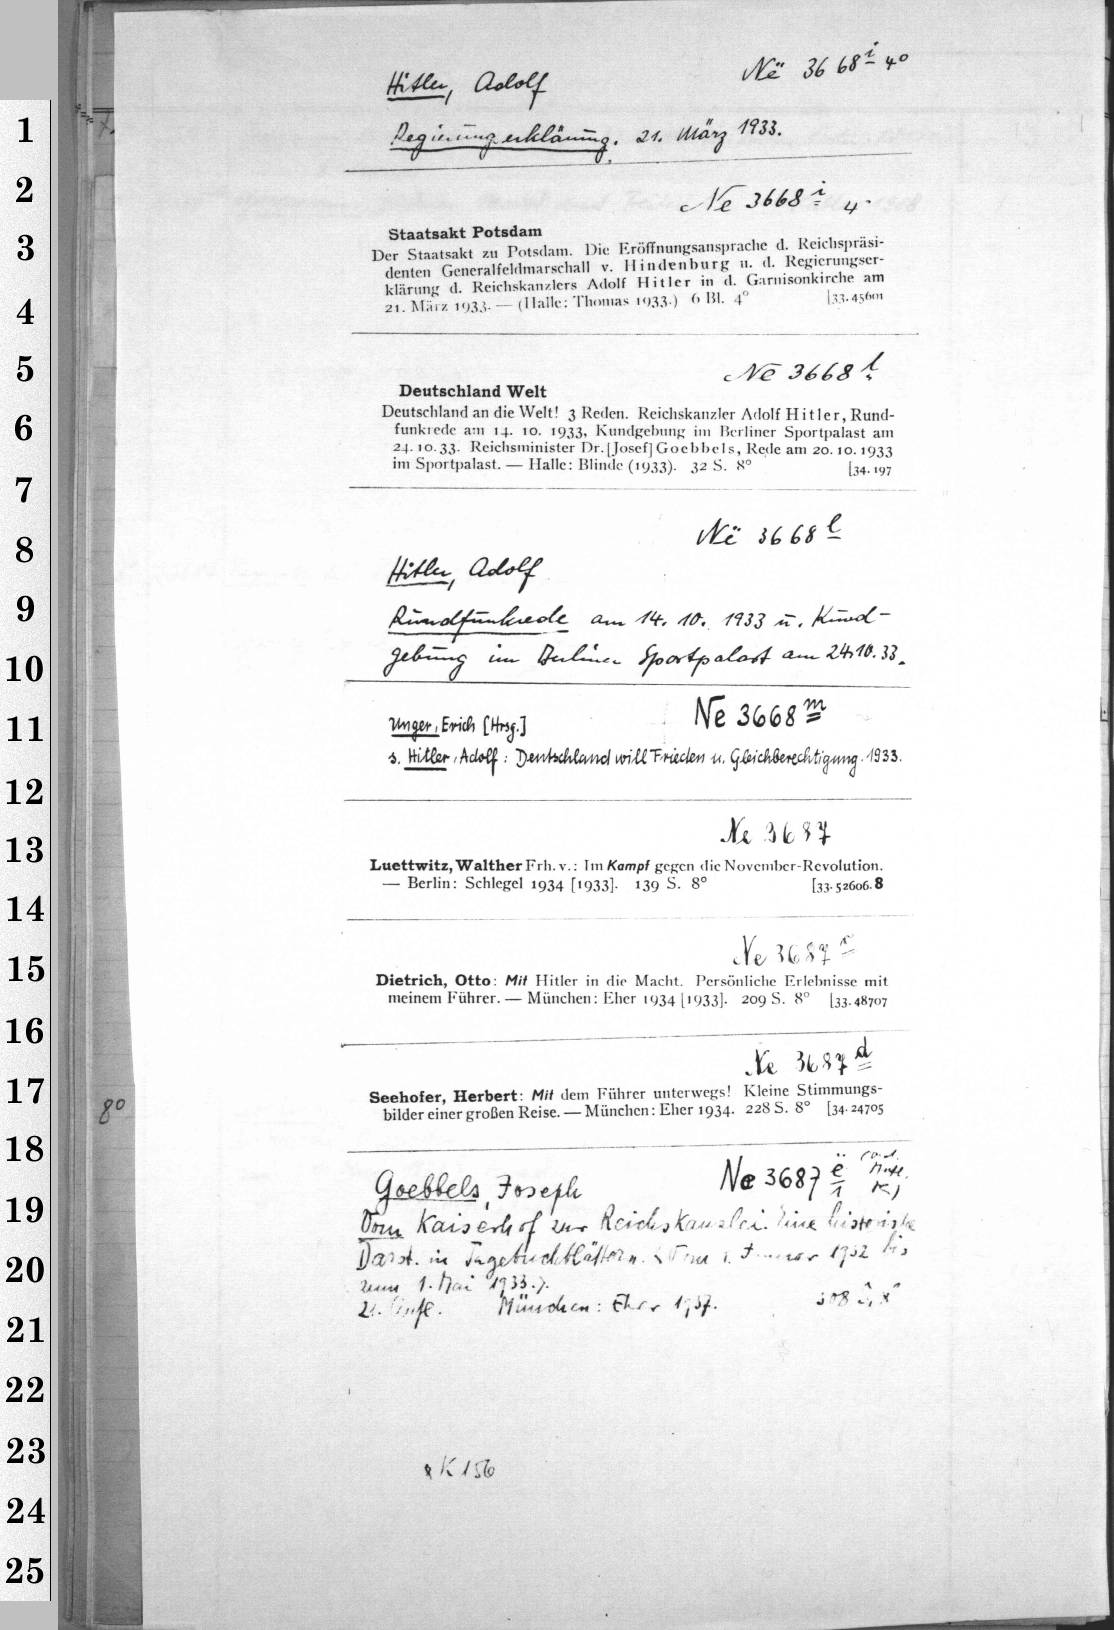 Hitler, Adolf
Në 3668 i 4°
Regierungserklärung. 21. März 1933.
Ne 3668 i 4°
Staatsakt Potsdam
Der Staatsakt zu Potsdam. Die Eröffnungsansprache d. Reichspräsi-
denten Generalfeldmarschall v. Hindenburg u. d. Regierungser-
klärung d. Reichskanzlers Adolf Hitler in d. Garnisonkirche am
21. März 1933. — (Halle: Thomas 1933.) 6 Bl. 4° [33.45601
Ne 3668 l
Deutschland Welt
Deutschland an die Welt! 3 Reden. Reichskanzler Adolf Hitler, Rund-
funkrede am 14. 10. 1933, Kundgebung im Berliner Sportpalast am
24. 10. 33. Reichsminister Dr. [Josef] Goebbels, Rede am 20. 10. 1933
im Sportpalast. — Halle: Blinde (1933). 32 S. 8° [34.197
Në 3668 l
Hitler, Adolf
Rundfunkrede am 14. 10. 1933 u. Kund-
gebung im Berliner Sportpalast am 24.10.33.
Ne 3668 m
Unger, Erich [Hrsg.]
s. Hitler, Adolf: Deutschland will Frieden u. Gleichberechtigung. 1933.
Ne 3687
Luettwitz, Walther Frh. v.: Im Kampf gegen die November-Revolution.
— Berlin: Schlegel 1934 [1933]. 139 S. 8° [33.52606.8
Ne 3687
Dietrich, Otto: Mit Hitler in die Macht. Persönliche Erlebnisse mit
meinem Führer. — München: Eher 1934 [1933]. 209 S. 8° [33.48707
Ne 3687 d
Seehofer, Herbert: Mit dem Führer unterwegs! Kleine Stimmungs-
bilder einer großen Reise. — München: Eher 1934. 228 S. 8° [34.24705
8°
Goebbels, Joseph
Ne 3687 ë 1
Vom Kaiserhof zur Reichskanzlei. Eine historische
Darst. in Tagebuchblättern. (Vom 1. Januar 1932 bis
zum 1. Mai 1933.).
21. Aufl. München: Eher 1937. 308 S. 8°
K 156
1
2
3
4
5
6
7
8
9
10
11
12
13
14
15
16
17
18
19
20
21
22
23
24
25